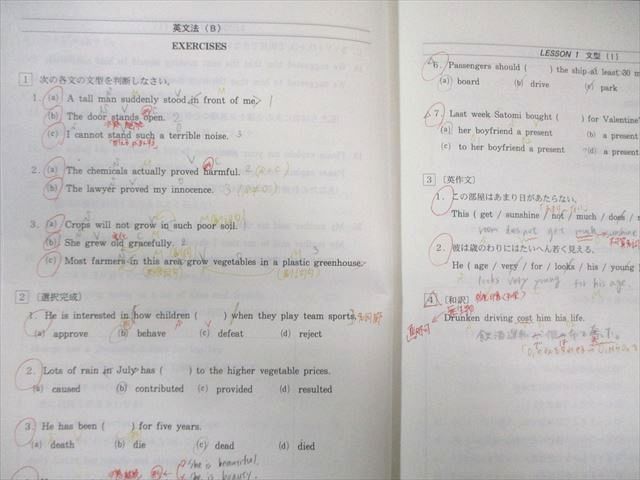 英文法（B）
EXERCISES
1 次の各文の文型を判断しなさい。
1. (a) A tall man suddenly stood in front of me. 1
(b) The door stands open. 2
(c) I cannot stand such a terrible noise. 3
2. (a) The chemicals actually proved harmful. 2
(b) The lawyer proved my innocence. 3
3. (a) Crops will not grow in such poor soil.
(b) She grew old gracefully. 2
(c) Most farmers in this area grow vegetables in a plastic greenhouse. 3
2 〔選択完成〕
1. He is interested in how children ( ) when they play team sports.
(a) approve (b) behave (c) defeat (d) reject
2. Lots of rain in July has ( ) to the higher vegetable prices.
(a) caused (b) contributed (c) provided (d) resulted
3. He has been ( ) for five years.
(a) death (b) die (c) dead (d) died
she is beautiful.
she is beauty.
LESSON 1 文型（1）
6. Passengers should ( ) the ship at least 30 m
(a) board (b) drive (c) park
7. Last week Satomi bought ( ) for Valentine'
(a) her boyfriend a present (b) a present
(c) to her boyfriend a present (d) a present
3 〔英作文〕
1. この部屋はあまり日があたらない。
This ( get / sunshine / not / much / does /
room does not get much sunshine
2. 彼は歳のわりにはたいへん若く見える。
He ( age / very / for / looks / his / young
looks very young for his age.
4 〔和訳〕
Drunken driving cost him his life.